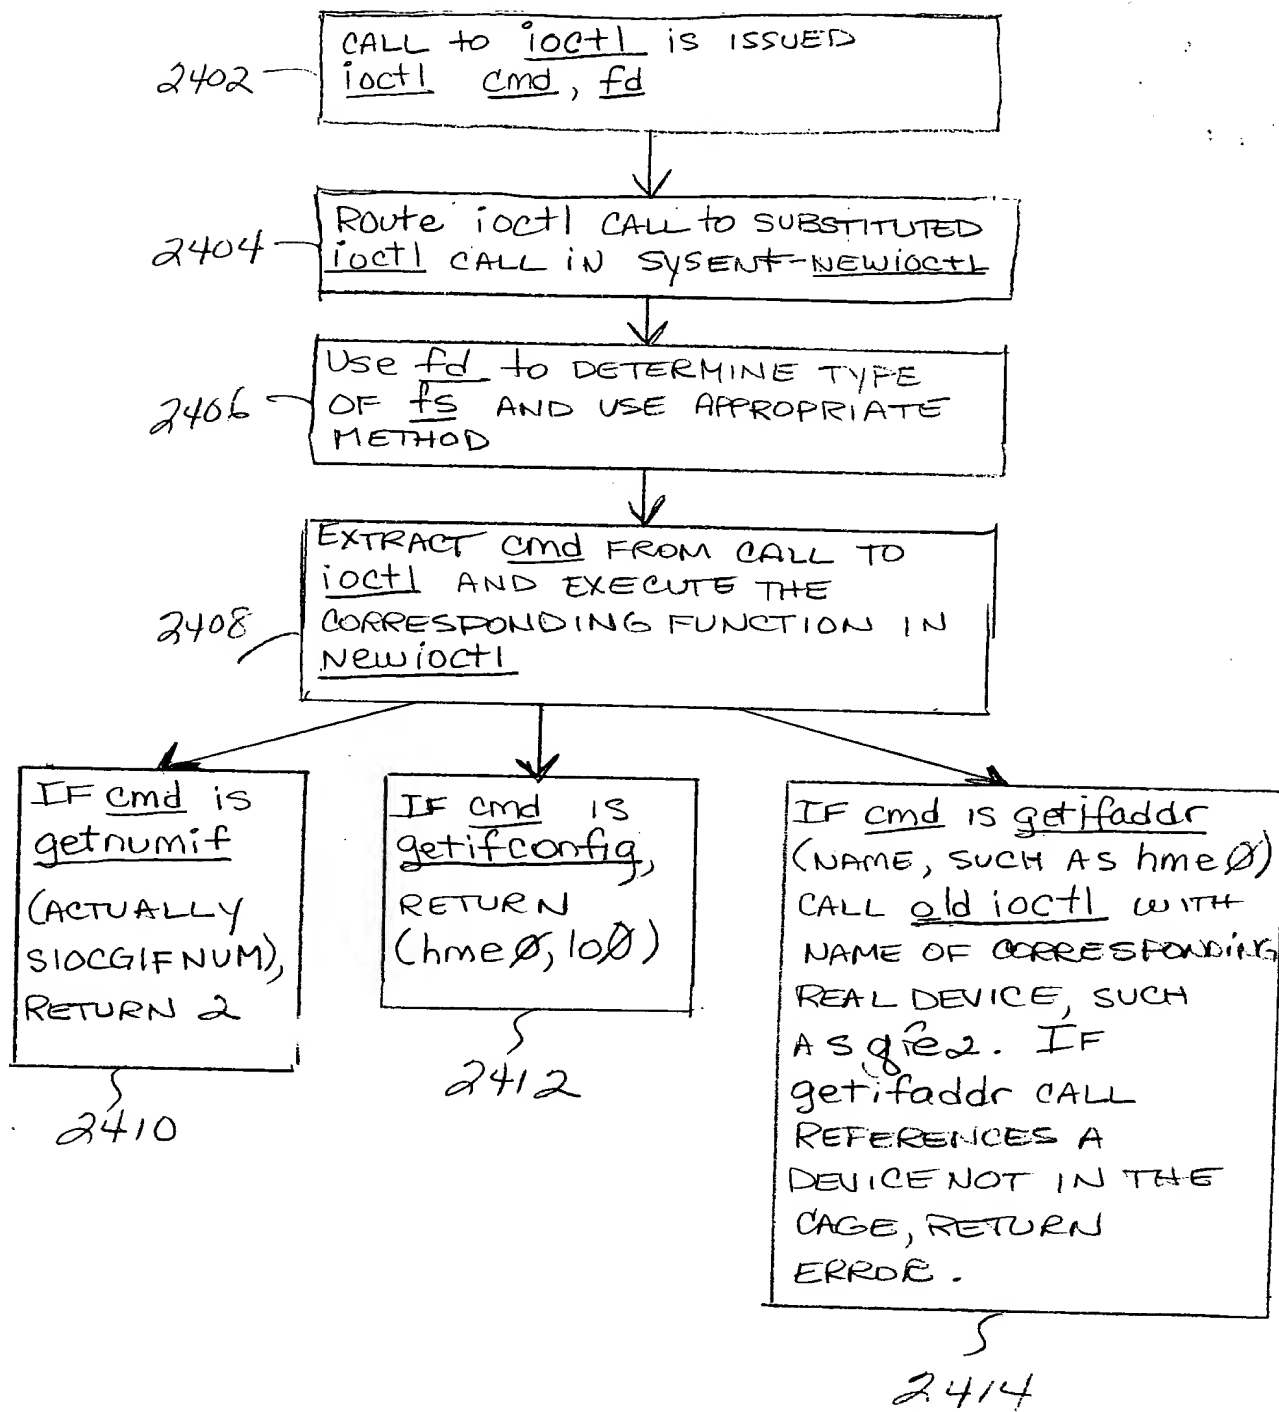 CALL to ioctl is ISSUED
ioctl cmd, fd
2402
Route ioctl CALL to SUBSTITUTED
ioctl CALL IN SYSENT-NEWioctl
2404
Use fd to DETERMINE TYPE
OF fs AND USE APPROPRIATE
METHOD
2406
EXTRACT cmd FROM CALL TO
ioctl AND EXECUTE THE
CORRESPONDING FUNCTION IN
Newioctl
2408
IF cmd is
getnumif
(ACTUALLY
SIOCGIFNUM),
RETURN 2
2410
IF cmd IS
getifconfig,
RETURN
(hmeØ, loØ)
2412
IF cmd IS getifaddr
(NAME, SUCH AS hmeØ)
CALL old ioctl WITH
NAME OF CORRESPONDING
REAL DEVICE, SUCH
AS qfe2. IF
getifaddr CALL
REFERENCES A
DEVICE NOT IN THE
CAGE, RETURN
ERROR.
2414